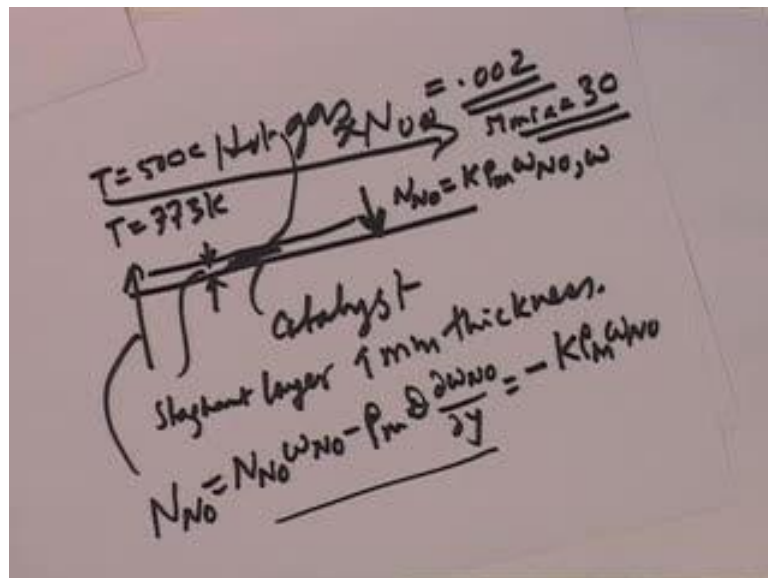 T=500c Hot gas xNO∞ = .002
Mmix = 30
T=773K
NNO = KρmωNO,w
Catalyst
Stagnant layer 1 mm thickness.
NNO = NNO ωNO - ρm D ∂ωNO/∂y = - KρmωNO